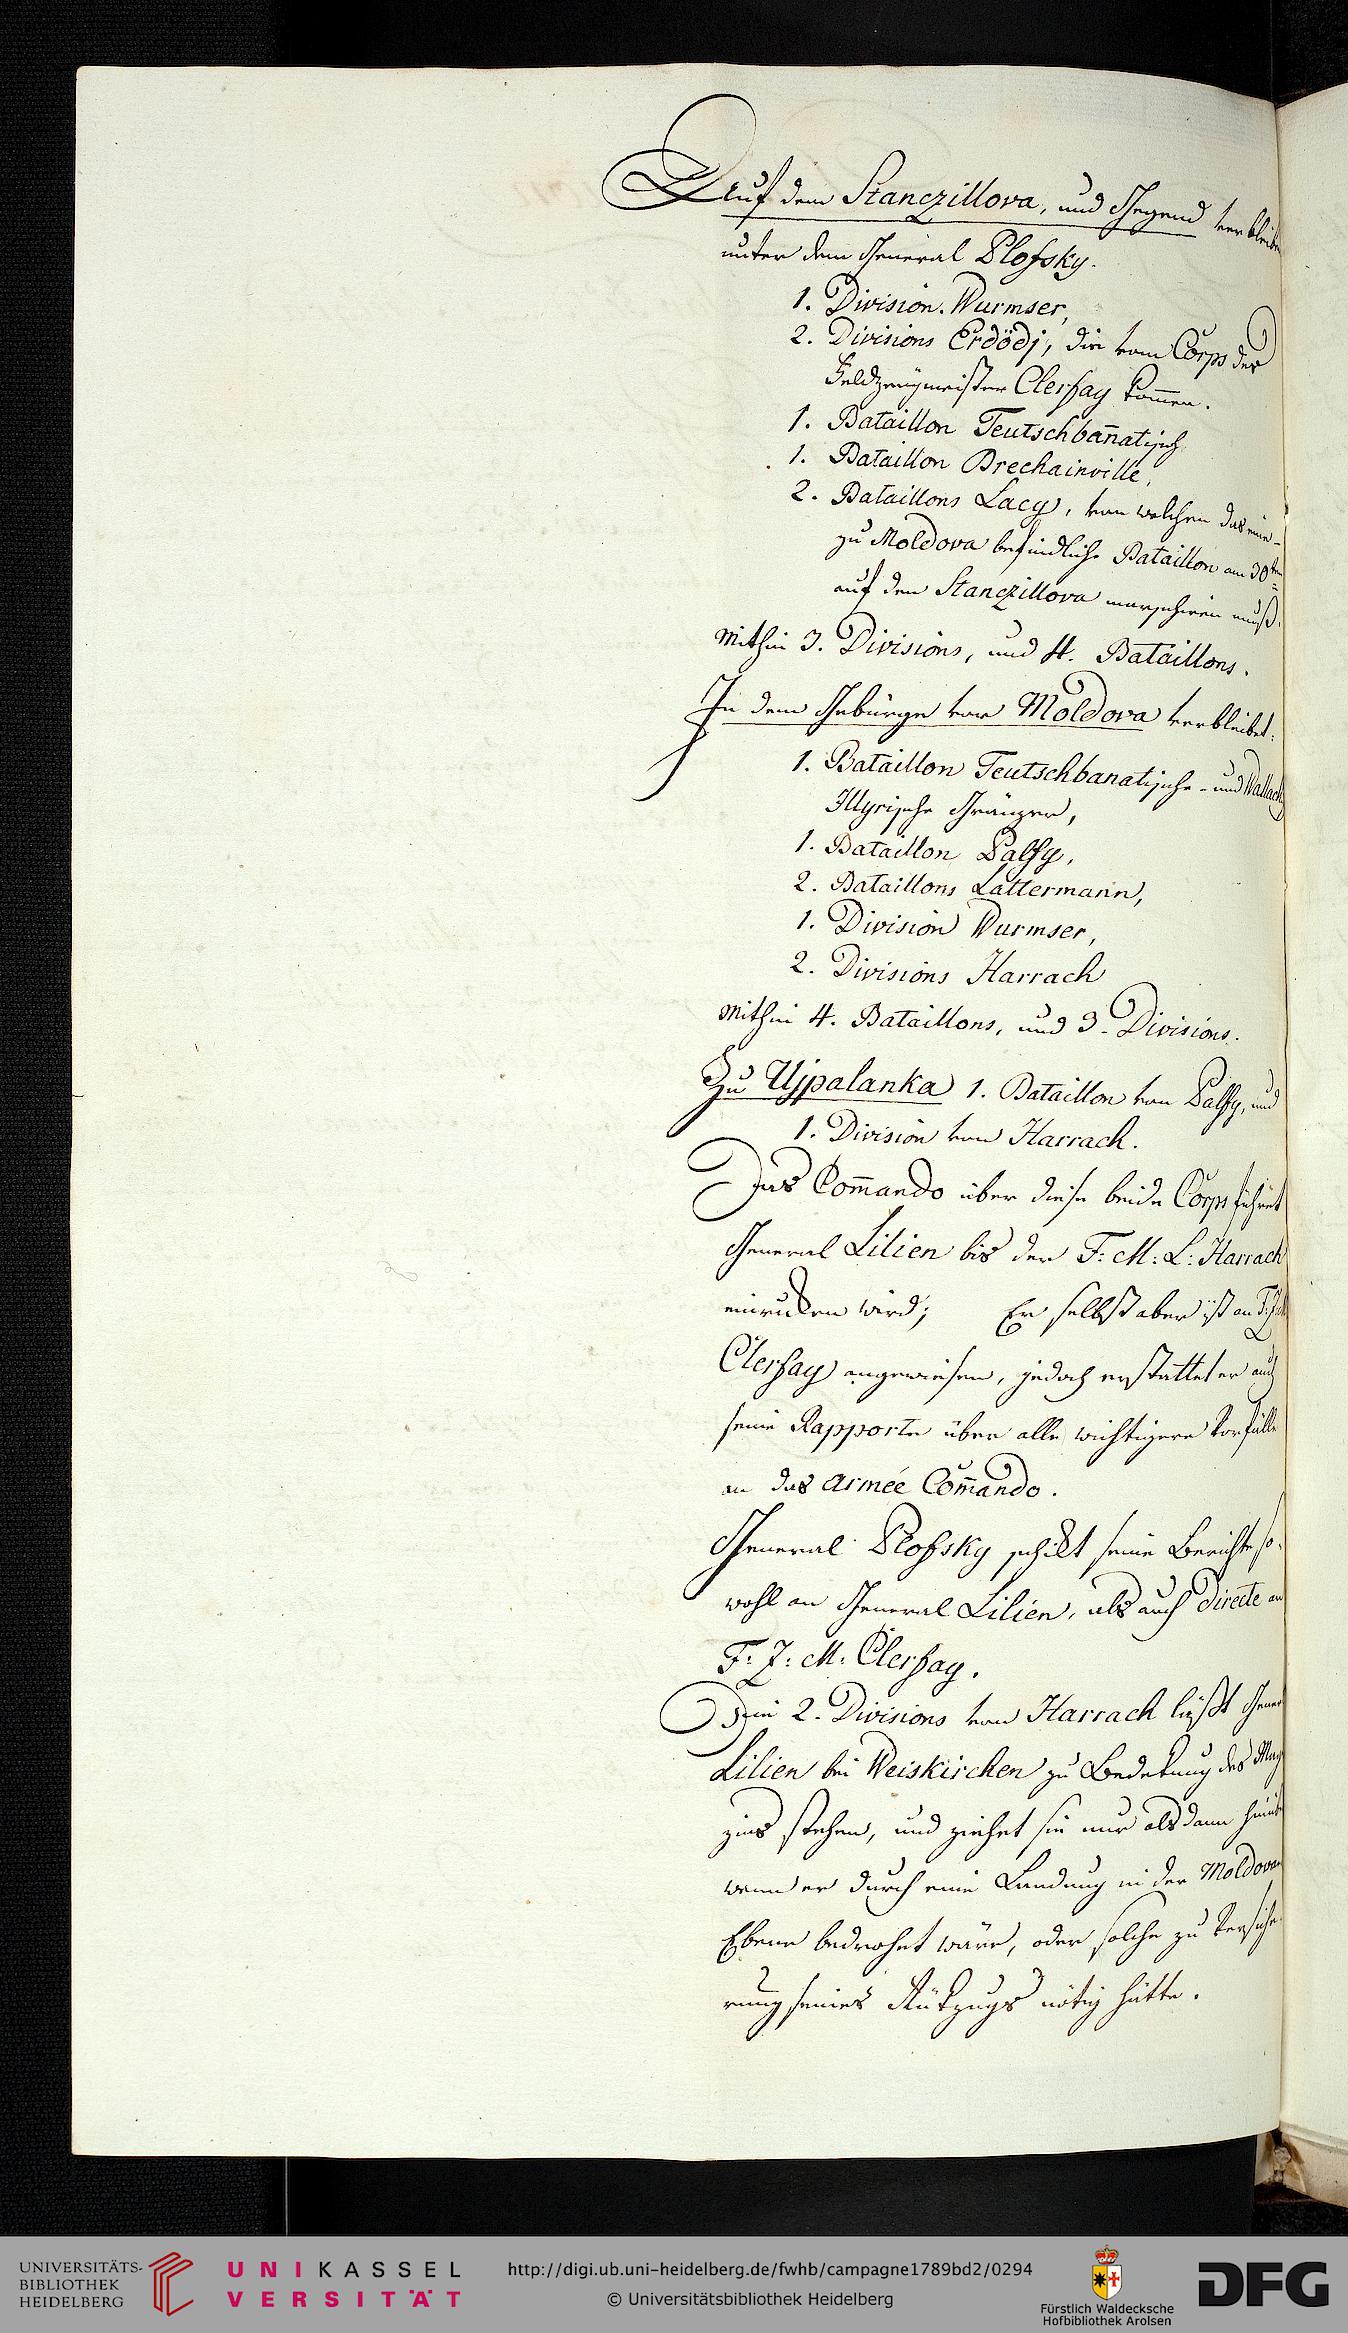 Auf dem Stanczillova, und Gegend verbleibe
unter dem General Plofsky.
1. Division Wurmser,
2. Divisions Erdödj, die vom Corps des
Feldzeugmeister Clerfay kom̄en.
1. Bataillon Teutschban̄atisch
1. Bataillon Brechainville,
2. Bataillons Lacy, von welchen das eine
zu Moldova befindliche Bataillon am 30ten
auf den Stanczillova marschiren muß.
Mithin 3. Divisions, und 4. Bataillons.
In dem Gebürge vor Moldova verbleibet:
1. Bataillon Teutschbanatische- und Wallach
Illyrische Gränzer,
1. Bataillon Palfy,
2. Bataillons Lattermann,
1. Division Wurmser,
2. Divisions Harrach
Mithin 4. Bataillons, und 3. Divisions.
Zu Ujpalanka 1. Bataillon von Palfy, und
1. Division von Harrach.
Das Com̄ando über diese beide Corps führet
General Lilien bis der F: M: L: Harrach
einruken wird; Er selbst aber ist an
Clerfay angewiesen, jedoch erstattet er auch
seine Rapporte über alle wichtigere Vorfälle
an das Armée Com̄ando.
General Plofsky schikt seine Berichte so-
wohl an General Lilien, als auch directe an
F: Z: M: Clerfay.
Die 2. Divisions von Harrach läßt Gener
Lilien bei Weiskirchen zu Bedekung des Mag
zins stehen, und ziehet sie nur alsdann
wenn er durch eine Landung in der Moldovaer
Ebene bedrohet wäre, oder solche zu Versiche-
rung seines Rükzugs nötig hätte.
UNIVERSITÄTS-
BIBLIOTHEK
HEIDELBERG
UNIKASSEL
VERSITÄT
http://digi.ub.uni-heidelberg.de/fwhb/campagne1789bd2/0294
© Universitätsbibliothek Heidelberg
Fürstlich Waldecksche
Hofbibliothek Arolsen
DFG